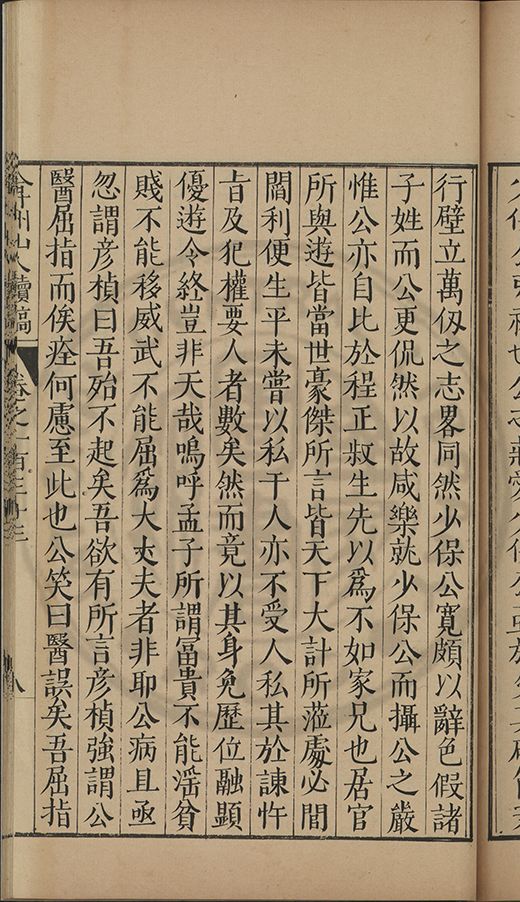 行壁立萬仭之志畧同然少保公寬頗以辭色假諸
子姓而公更侃然以故咸樂就少保公而攝公之嚴
惟公亦自比於程正叔生先以爲不如家兄也居官
所與遊皆當世豪傑所言皆天下大計所蒞處必間
閻利便生平未嘗以私干人亦不受人私其於諫忤
旨及犯權要人者數矣然而竟以其身免歷位融顯
優遊令終豈非天哉嗚呼孟子所謂冨貴不能滛貧
賤不能移威武不能屈爲大丈夫者非耶公病且亟
忽謂彦楨曰吾殆不起矣吾欲有所言彦楨強謂公
醫屈指而俟痊何慮至此也公笑曰醫誤矣吾屈指
弇州山人續稿 卷之一百三十三 八